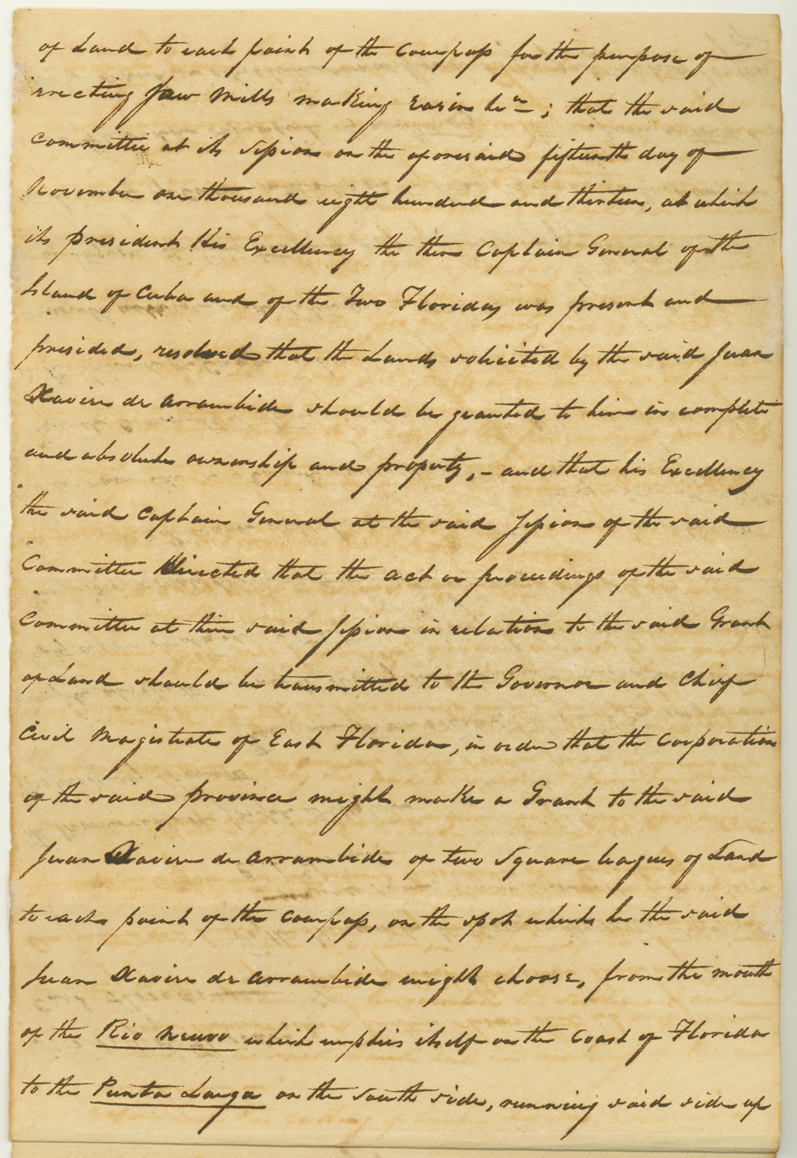 of Land to each point of the Compass for the purpose of
erecting Saw Mills making Rosin &c; that the said
Committee at its Session on the aforesaid fifteenth day of
November one thousand eight hundred and thirteen, at which
its president His Excellency the then Captain General of the
Island of Cuba and of the Two Floridas was present and
presided, resolved that the Lands solicited by the said Juan
Xavier de Arrambide should be granted to him in complete
and absolute ownership and property, - and that his Excellency
the said Captain General at the said Session of the said
Committee directed that the act or proceedings of the said
Committee at their said Session in relation to the said Grant
of Land should be transmitted to the Governor and Chief
Civil Magistrate of East Florida, in order that the Corporation
of the said province might make a Grant to the said
Juan Xavier de Arrambide of two Square leagues of Land
to each point of the Compass, on the spot which he the said
Juan Xavier de Arrambide might choose, from the mouth
of the Rio Neuvo which empties itself on the Coast of Florida
to the Punta Larga on the South side, running said side up